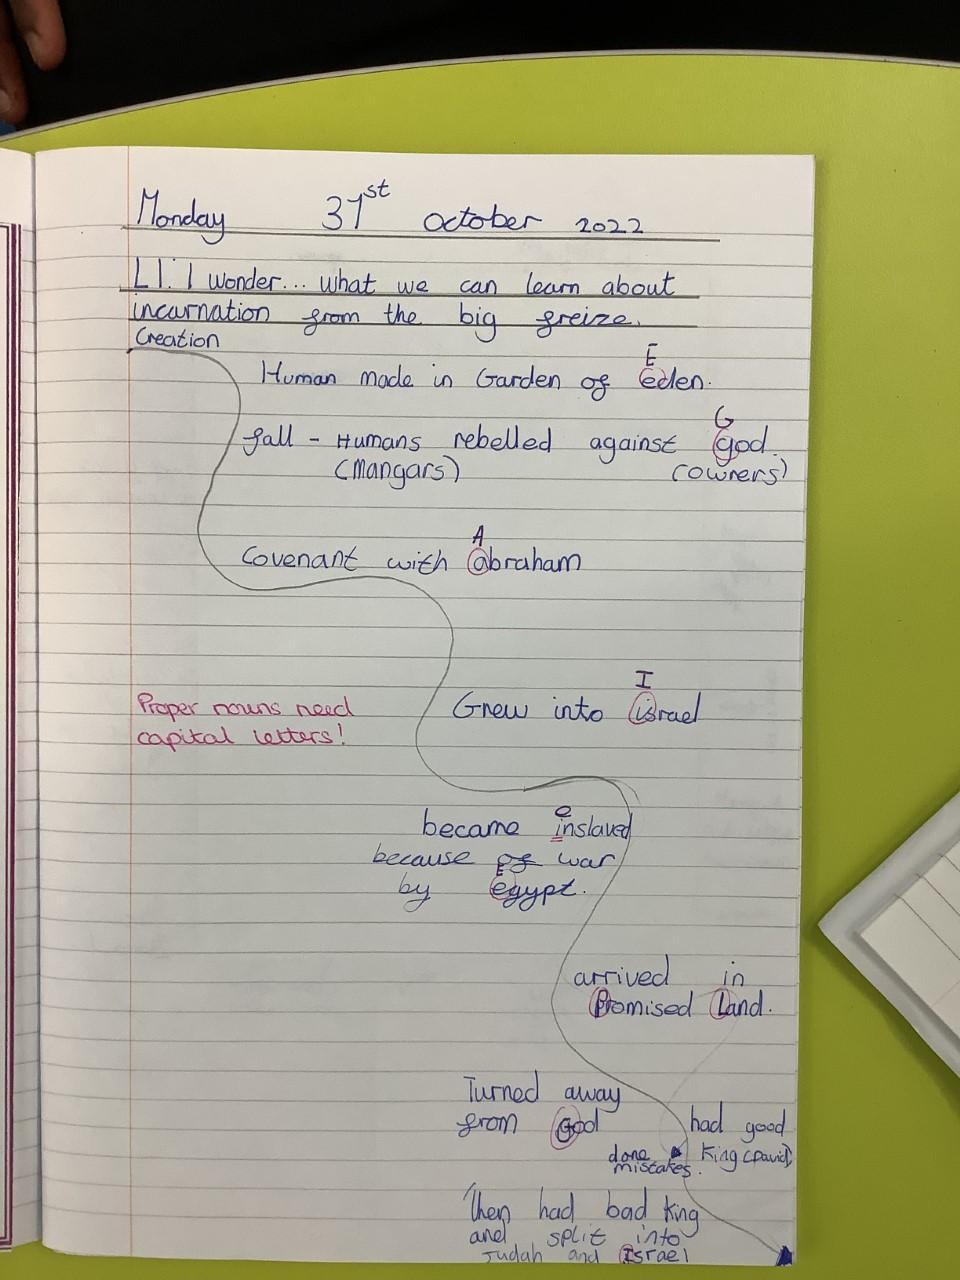 Monday 31st October 2022
LI: I wonder... what we can learn about
incarnation from the big freize.
Creation
E
Human made in Garden of eden.
G
fall - Humans rebelled against god.
(Mangars) (owners)
A
Covenant with abraham
I
Proper nouns need
capital letters!
Grew into israel
e
became inslaved
because of war
E
by egypt.
arrived in
Promised Land.
Turned away
from God
had good
King (David)
done
mistakes.
Then had bad king
and split into
Judah and Israel